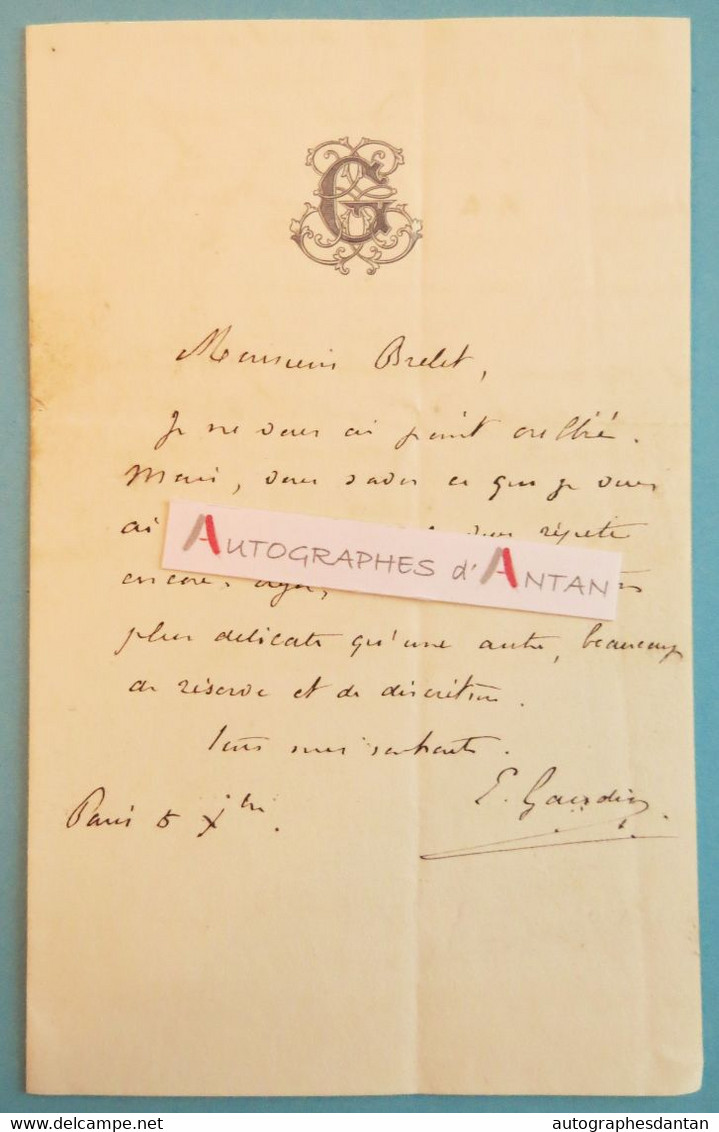 G
Monsieur Brelet,
Je ne vous ai point oublié.
Mais, vous savez ce que je vous
ai vous répète
encore
plus délicate qu'une autre, beaucoup
de réserve et de discrétion.
Tous mes souhaits.
E. Gaudin
Paris 5 Xbre.
AUTOGRAPHES d'ANTAN
delcampe.net
autographesdantan